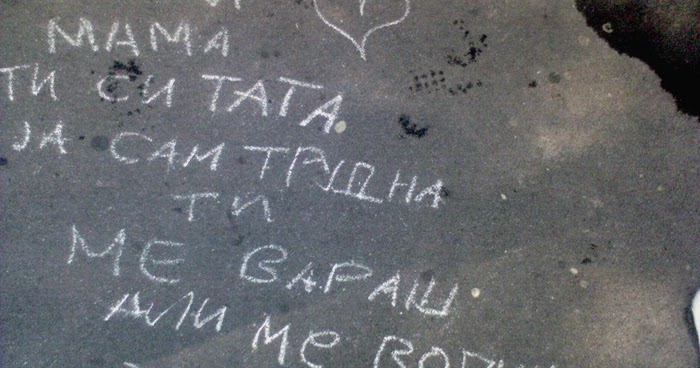 МАМА
ТИ СИ ТАТА
ЈА САМ ТРУДНА
ТИ
МЕ ВАРАШ
АЛИ МЕ